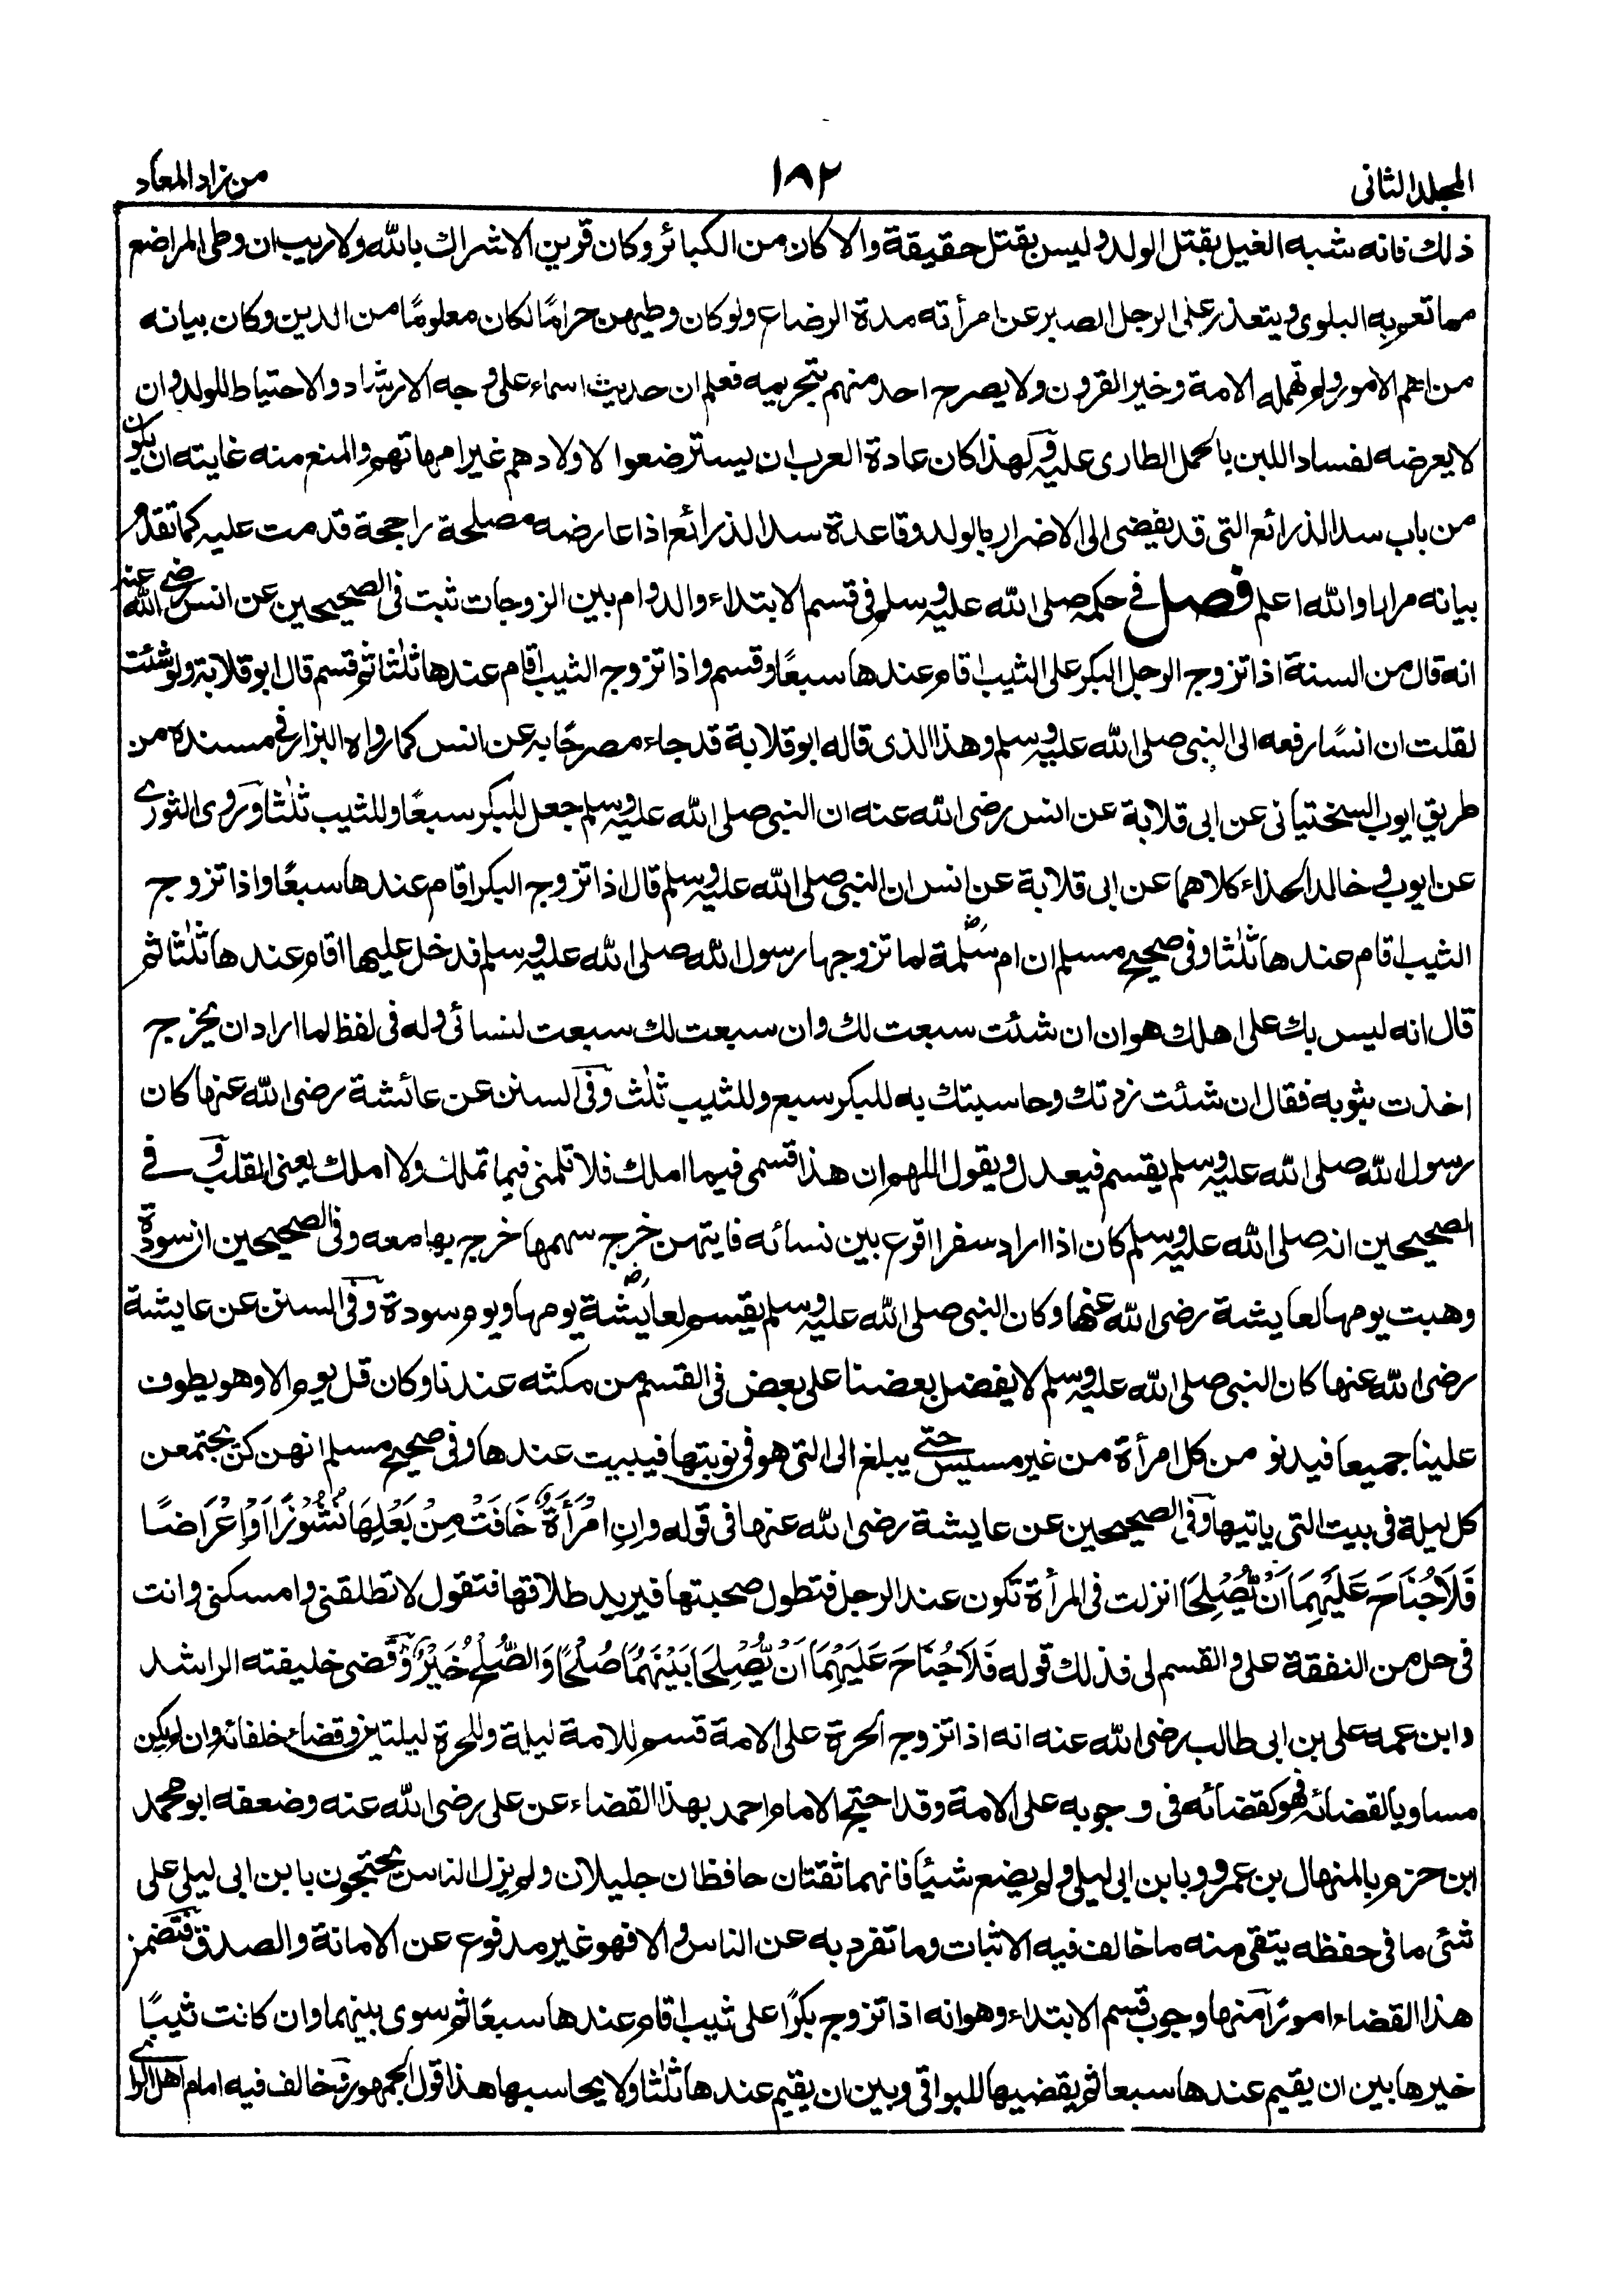 المجلد الثانى
١٨٢
من زاد المعاد
ذلك فانه شبه الغيل بقتل الولد وليس بقتل حقيقة والا كان من الكبائر وكان قرين الاشراك بالله ولا ريب ان وطى المراضع
مما تعم به البلوى ويتعذر على الرجل الصبر عن امرأته مدة الرضاع ولو كان وطيهن حرامًا لكان معلومًا من الدين وكان بيانه
من اهم الامور ولم تهمله الامة وخير القرون ولا يصرح احد منهم بتحريمه فعلم ان حديث اسماء على وجه الارشاد والاحتياط للولد وان
لا يعرضه لفساد اللبن بالحمل الطارى عليه ولهذا كان عادة العرب ان يسترضعوا لاولادهم غير امهاتهم والمنع منه غايته ان يكون
من باب سد الذرائع التى قد يفضى الى الاضرار بالولد وقاعدة سد الذرائع اذا عارضه مصلحة راجحة قدمت عليه كما تقدم
بيانه مرارا والله اعلم فصل فى حكمه صلى الله عليه وسلم فى قسم الابتداء والدوام بين الزوجات ثبت فى الصحيحين عن انس رضى الله عنه
انه قال من السنة اذا تزوج الرجل البكر على الثيب اقام عندها سبعًا وقسم واذا تزوج الثيب اقام عندها ثلٰثا ثم قسم قال ابو قلابة ولو شئت
لقلت ان انسًا رفعه الى النبى صلى الله عليه وسلم وهذا الذى قاله ابو قلابة قد جاء مصرحًا به عن انس كما رواه البزار فى مسنده من
طريق ايوب السختيانى عن ابى قلابة عن انس رضى الله عنه ان النبى صلى الله عليه وسلم جعل للبكر سبعًا وللثيب ثلٰثا وروى الثورى
عن ايوب وخالد الحذاء كلاهما عن ابى قلابة عن انس ان النبى صلى الله عليه وسلم قال اذا تزوج البكر اقام عندها سبعًا واذا تزوج
الثيب اقام عندها ثلٰثا وفى صحيح مسلم ان ام سلمة لما تزوجها رسول الله صلى الله عليه وسلم فدخل عليها اقام عندها ثلٰثا ثم
قال انه ليس بك على اهلك هوان ان شئت سبعت لك وان سبعت لك سبعت لنسائى وله فى لفظ لما اراد ان يخرج
اخذت بثوبه فقال ان شئت زدتك وحاسبتك به للبكر سبع وللثيب ثلٰث وفى السنن عن عائشة رضى الله عنها كان
رسول الله صلى الله عليه وسلم يقسم فيعدل ويقول اللهم ان هذا قسمى فيما املك فلا تلمنى فيما تملك ولا املك يعنى القلب وفى
الصحيحين انه صلى الله عليه وسلم كان اذا اراد سفرا اقرع بين نسائه فايتهن خرج سهمها خرج بها معه وفى الصحيحين ان سودة
وهبت يومها لعايشة رضى الله عنها وكان النبى صلى الله عليه وسلم يقسم لعايشة يومها ويوم سودة وفى السنن عن عايشة
رضى الله عنها كان النبى صلى الله عليه وسلم لا يفضل بعضنا على بعض فى القسم من مكثه عندنا وكان قل يوم الا وهو يطوف
علينا جميعا فيدنو من كل امرأة من غير مسيس حتى يبلغ الى التى هو فى نوبتها فيبيت عندها وفى صحيح مسلم انهن كن يجتمعن
كل ليلة فى بيت التى ياتيها وفى الصحيحين عن عايشة رضى الله عنها فى قوله وان امْرَأَةٌ خَافَتْ مِنْ بَعْلِهَا نُشُوْزًا اَوْ اِعْرَاضًا
فَلَا جُنَاحَ عَلَيْهِمَا اَنْ يُّصْلِحَا انزلت فى المرأة تكون عند الرجل فتطول صحبتها فيريد طلاقها فتقول لا تطلقنى وامسكنى وانت
فى حل من النفقة على والقسم لى فذلك قوله فَلَا جُنَاحَ عَلَيْهِمَا اَنْ يُّصْلِحَا بَيْنَهُمَا صُلْحًا وَالصُّلْحُ خَيْرٌ وقضى خليفته الراشد
وابن عمه على بن ابى طالب رضى الله عنه انه اذا تزوج الحرة على الامة قسم للامة ليلة وللحرة ليلتين وقضاء خلفائه وان لم يكن
مساويا لقضائه فهو كقضائه فى وجوبه على الامة وقد احتج الامام احمد بهذا القضاء عن على رضى الله عنه وضعفه ابو محمد
ابن حزم بالمنهال بن عمرو وبابن ابى ليلى ولم يضع شيأ فانهما ثقتان حافظان جليلان ولم يزل الناس يحتجون بابن ابى ليلى على
شئى ما فى حفظه يتقى منه ما خالف فيه الاثبات وما تفرد به عن الناس والا فهو غير مدفوع عن الامانة والصدق فتضمن
هذا القضاء امورًا منها وجوب قسم الابتداء وهو انه اذا تزوج بكرًا على ثيب اقام عندها سبعًا ثم سوى بينهما وان كانت ثيبًا
خيرها بين ان يقيم عندها سبعا ثم يقضيها للبواقى وبين ان يقيم عندها ثلٰثا ولا يحاسبها هذا قول الجمهور وخالف فيه امام اهل الراى